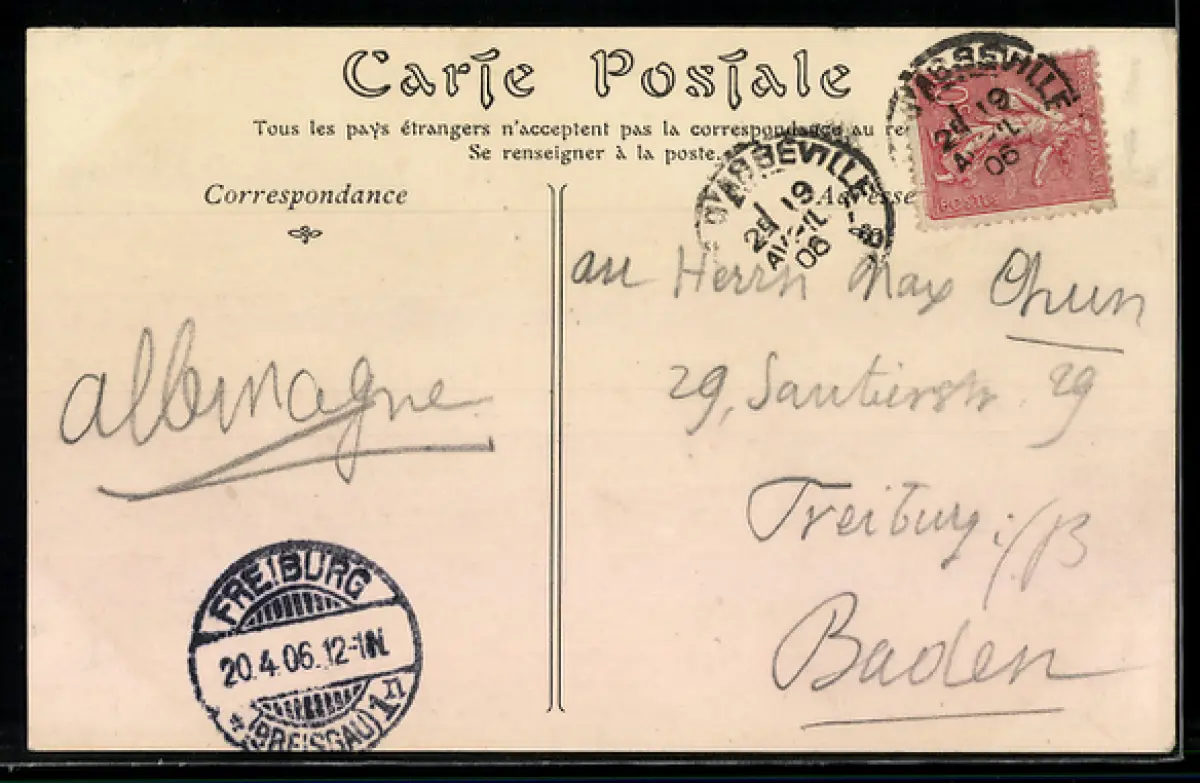 Carte Postale
Tous les pays étrangers n'acceptent pas la correspondance au re
Se renseigner à la poste.
Correspondance
Adresse
ABBEVILLE
19
AVRIL
06
ABBEVILLE
19
AVRIL
06
POSTES
au Herrn Max
29, Sautierstr 29
Freiburg i/B
Baden
allemagne
FREIBURG
20.4.06.12-1N.
* (BREISGAU) 1